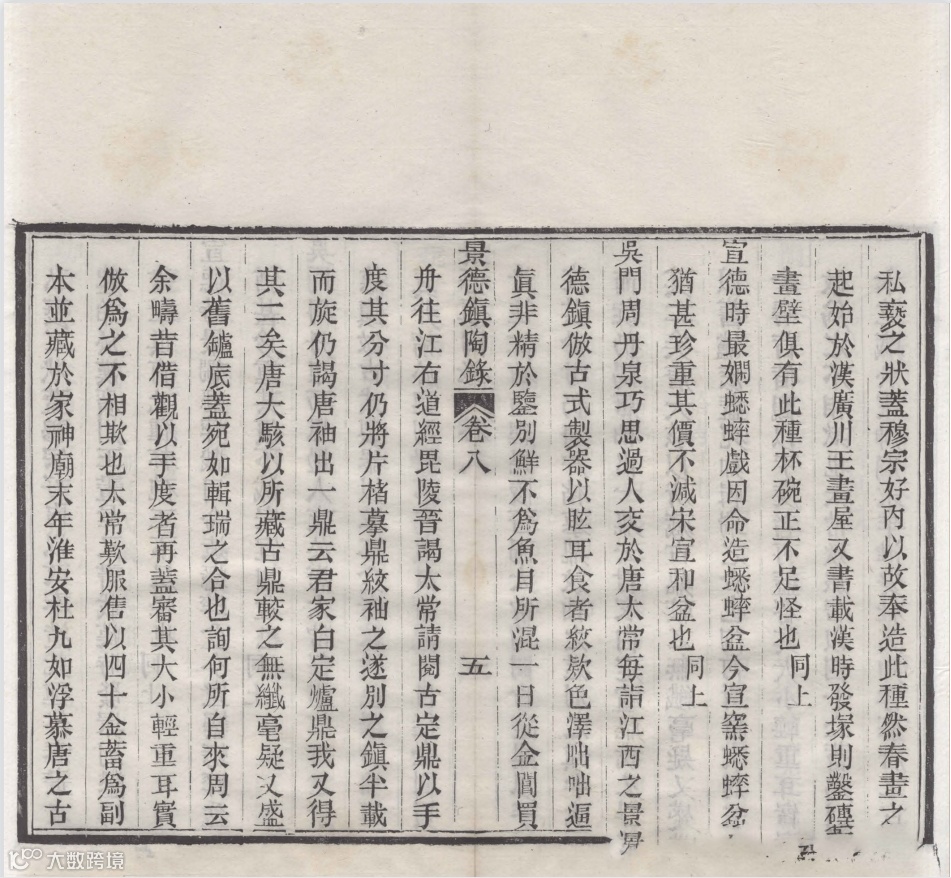 私褻之狀蓋穆宗好內以故奉造此種然春畫之
起始於漢廣川王畫屋又書載漢時發塚則鑿磚
畫壁俱有此種杯碗正不足怪也同上
宣德時最嫻蟋蟀戲因命造蟋蟀盆今宣窯蟋蟀盆
猶甚珍重其價不減宋宣和盆也同上
吳門周丹泉巧思過人交於唐太常每詣江西之景
德鎮倣古式製器以眩耳食者紋欵色澤咄咄逼
眞非精於鑒別鮮不爲魚目所混一日從金閶買
景德鎮陶錄 卷八 五
舟往江右道經毘陵晉謁太常請閱古定鼎以手
度其分寸仍將片楮摹鼎紋袖之遂別之鎮半載
而旋仍謁唐袖出一鼎云君家白定爐鼎我又得
其二矣唐大駭以所藏古鼎較之無纖毫疑义盛
以舊鑪底蓋宛如輯瑞之合也詢何所自來周云
余疇昔借觀以手度者再蓋審其大小輕重耳實
倣爲之不相欺也太常歎服售以四十金蓄爲副
本並藏於家神廟末年淮安杜九如浮慕唐之古
大数跨境